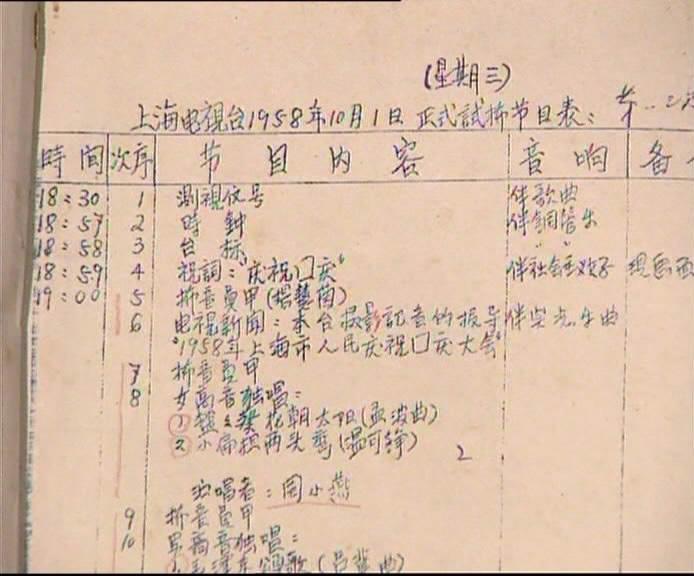 (星期三)
上海电视台1958年10月1日 正式試播节目表：
時間 次序 节目内容 音响 备
18:30 1 測視信号 伴歌曲
18:57 2 時鈡 伴銅管乐
18:58 3 台标 〃 〃
18:59 4 祝詞："庆祝囗庆" 伴社会主义好
19:00 5 播音員甲
6 电视新闻：本台摄影記者的报导
"1958年上海市人民庆祝囗庆大会"
7 播音員甲
8 女高音独唱：
① 葵花朝太阳(孟波曲)
② 小扁担两头弯
2
演唱者：周小燕
9 播音員甲
10 男高音独唱：